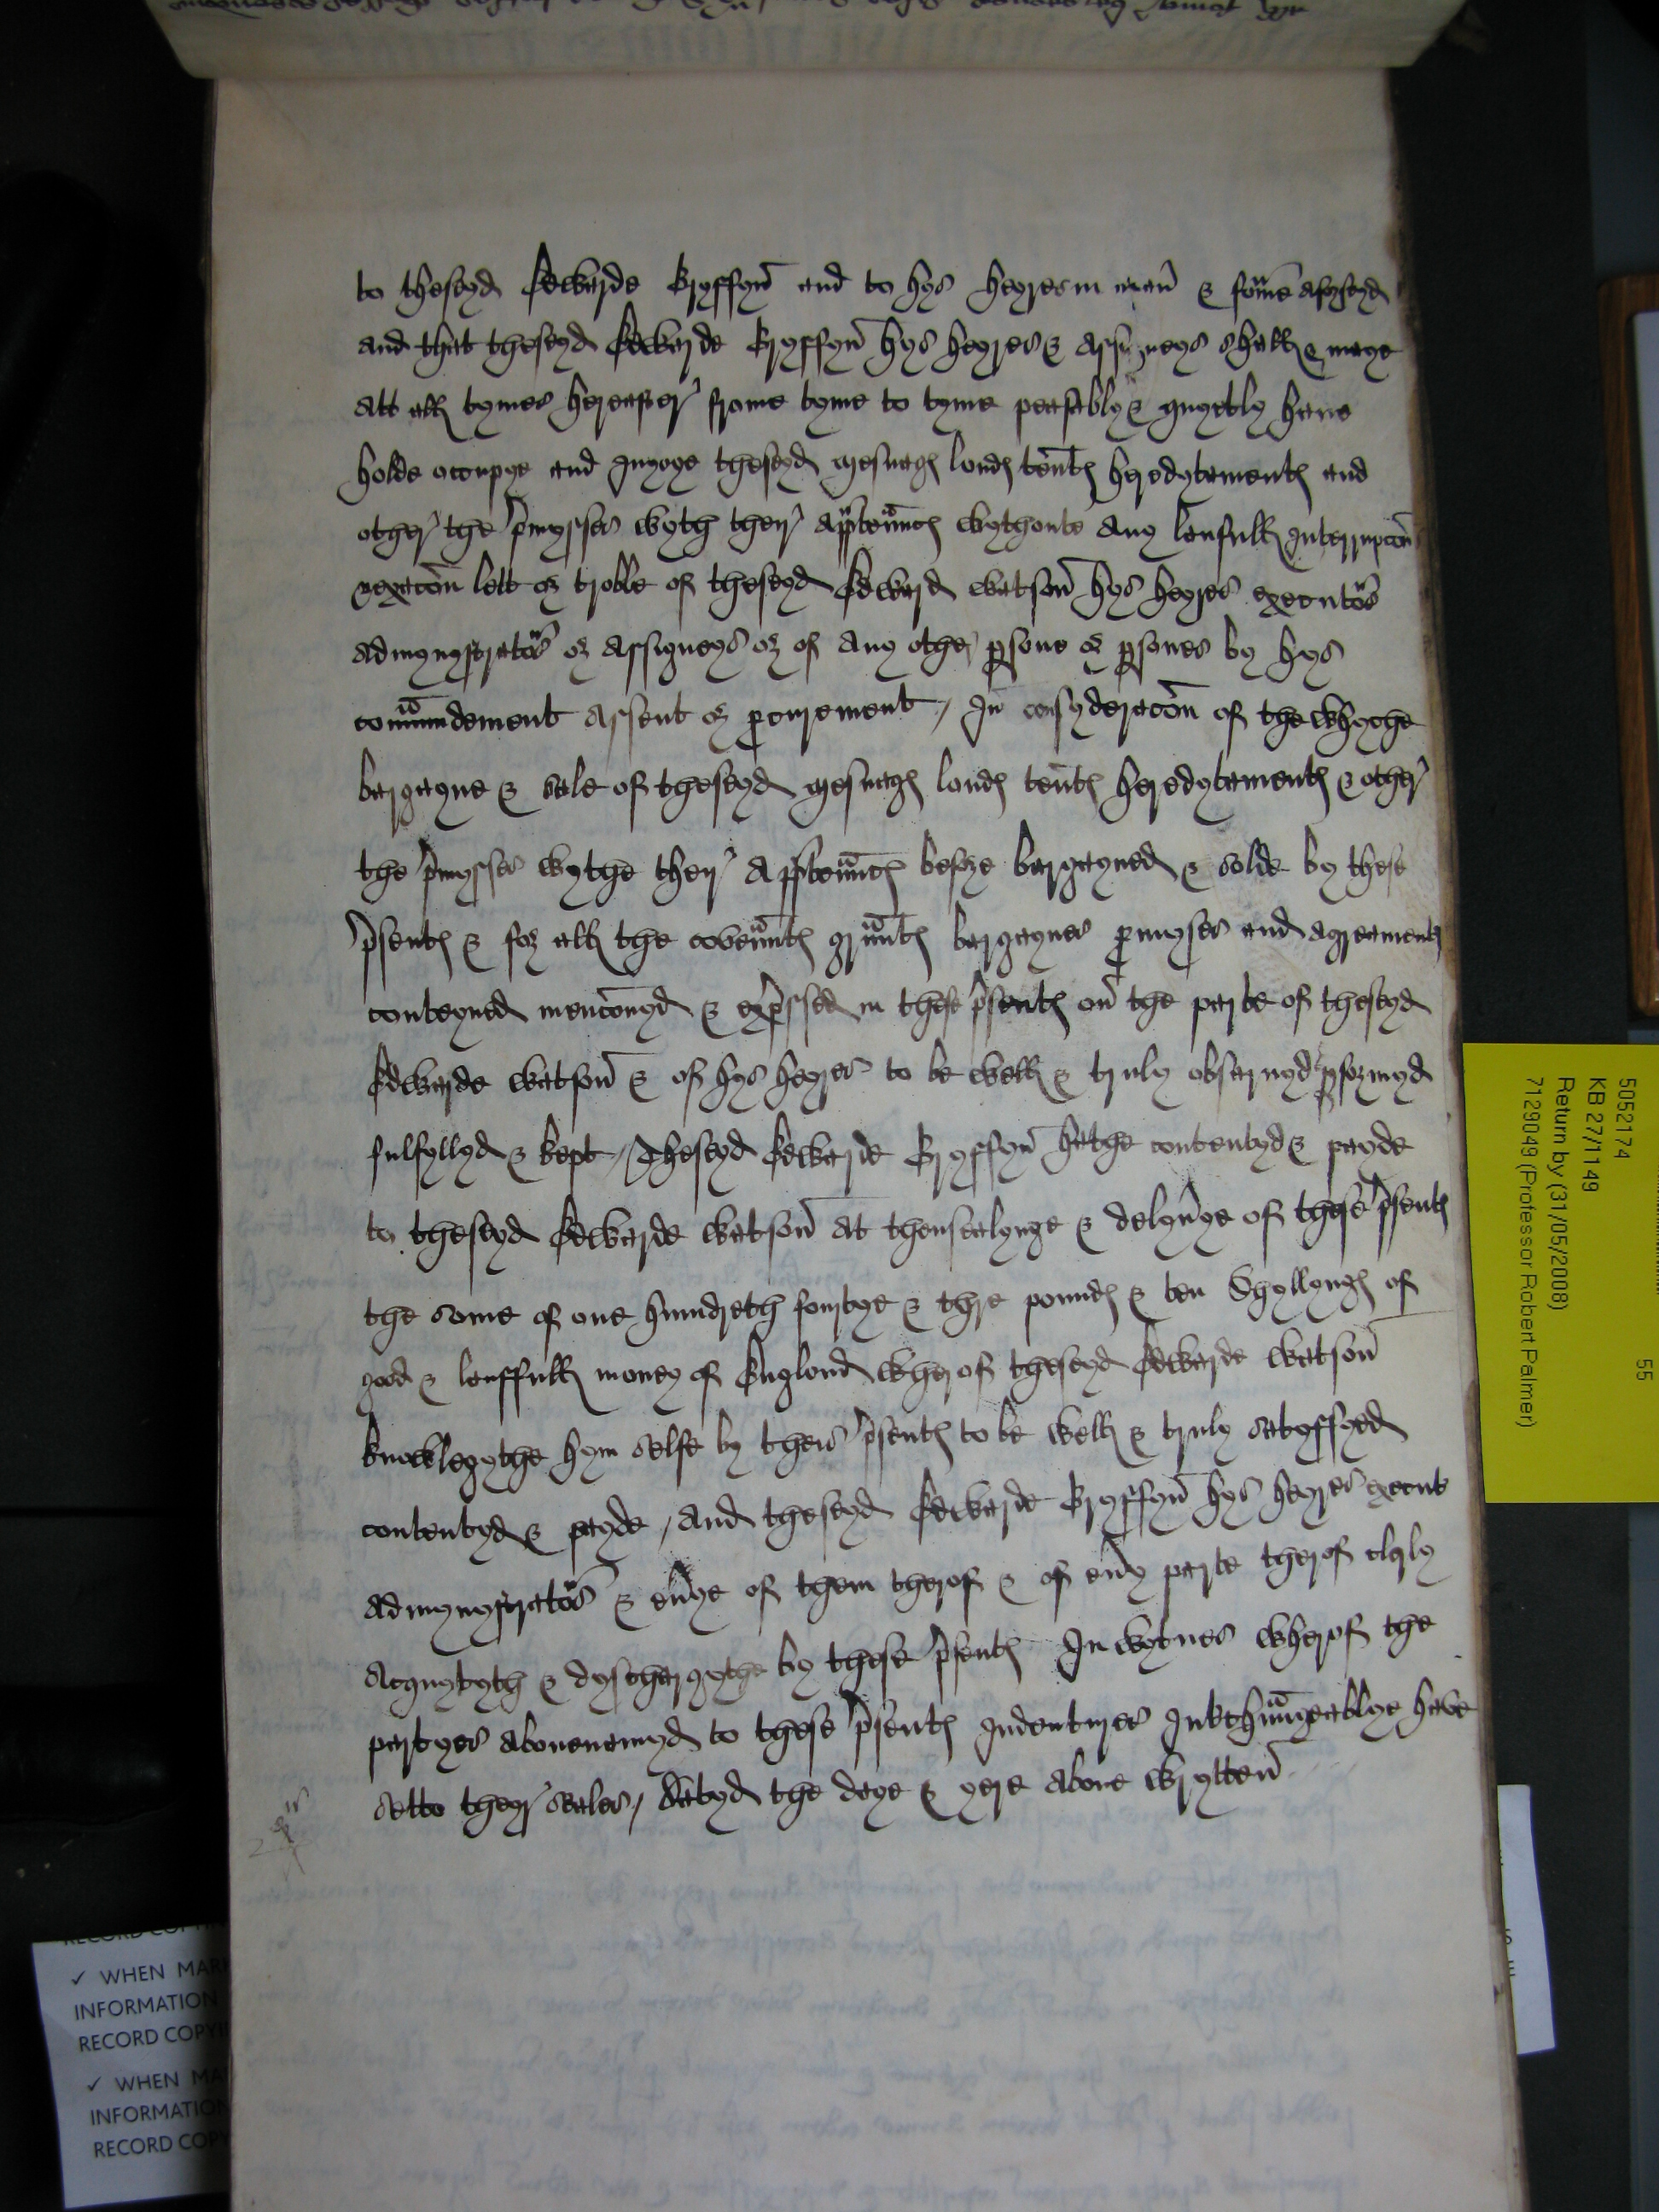 to theseyd Edwarde Gryffyn and to hys heyres in man & forme afsyd
and that theseyd Edwarde Gryffyn hys heyres & assigneys shall & maye
att all tymes hereafter frome tyme to tyme peasably & quyetly have
holde occupye and Inyoye theseyd mesuag londs tents heredytaments and
other the pmysses wyth ther apptennc wythoute any laufull Interrupcon
vexacon lett or troble of theseyd Edward Watson hys heyres executos
admynystratos or assigneys or of any other psone or psones by hys
comaundement assent or pcurement / In consyderacon of the whyche
bargayne & sale of theseyd mesuag londs tents heredytaments & other
the pmysses wythe ther apptennc before bargayned & solde by these
psents & for all the covennts graunts bargaynes pmyses and agreaments
conteyned menconyd & expssed in these psents on the parte of theseyd
Edwarde Watson & of hys heyres to be well & truly obseruyd pformyd
fulfyllyd & kept / Theseyd Edwarde Gryffyn hathe contentyd & payde
to theseyd Edwarde Watson at thensealynge & delyuye of these psents
the some of one hundreth fourtye & thre pounds & ten Shyllyngs of
good & lauffull money of Englond wherof theseyd Edwarde Watson
knowlegythe hym selfe by theis psents to be well & truly satysfyed
contentyd & payde / And theseyd Edwarde Gryffyn hys heyres execut
admynystratos & euye of them therof & of euy parte therof clerly
acquytyth & dyschargythe by these psents In wytnes wherof the
partyes abouenamyd to these psents Indentures Int'chaungeablye have
setto theyr seales / Datyd the daye & yere above wrytten
5052174
55
KB 27/1149
Return by (31/05/2008)
7129049 (Professor Robert Palmer)
✓ WHEN MAR
INFORMATION
RECORD COPYI
✓ WHEN MA
INFORMATION
RECORD COPY